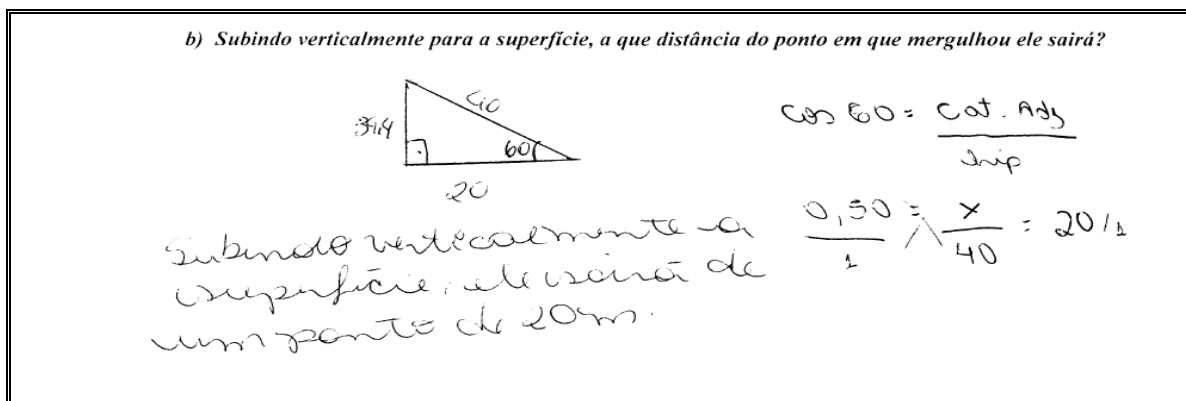 b) Subindo verticalmente para a superfície, a que distância do ponto em que mergulhou ele sairá?
40
34,4
60
20
cos 60 = Cat. Adj
hip
0,50 = x = 20/1
1 40
Subindo verticalmente a
superfície, ele sairá de
um ponto de 20m.